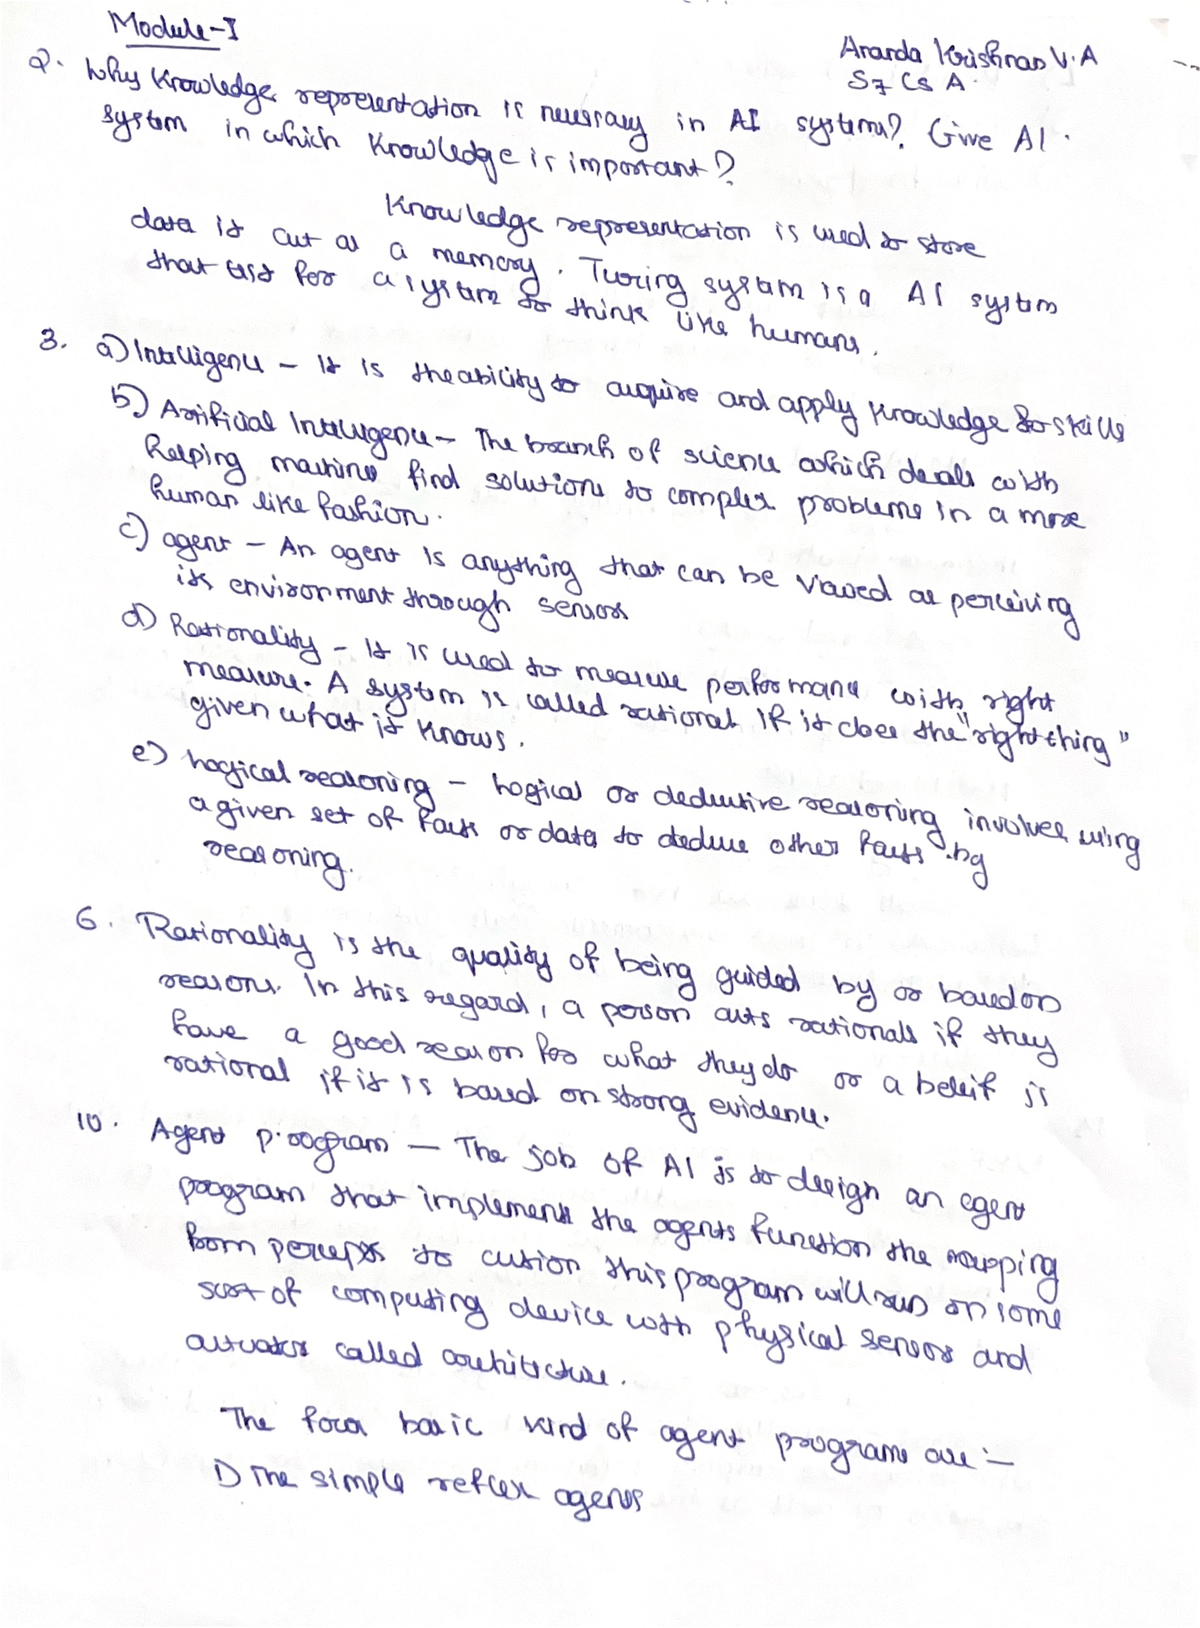 Module-I
Ananda Krishnan V.A
S7 CS A.
2. Why Knowledge representation is necessary in AI systems? Give AI.
system in which Knowledge is important?
Knowledge representation is used to store
data it act as a memory. Turing system is a AI system
that test for a system to think like humans.
3. a) Intelligence - It is the ability to acquire and apply knowledge & skills
b) Artificial Intelligence - The branch of science which deals with
helping machines find solutions to complex problems in a more
human like fashion.
c) agent - An agent is anything that can be viewed as perceiving
its environment through sensors
d) Rationality - It is used to measure performance with right
measure. A system is called rational if it does the "right thing"
given what it knows.
e) Logical reasoning - Logical or deductive reasoning involves using
a given set of facts or data to deduce other facts by
reasoning.
6. Rationality is the quality of being guided by or based on
reasons. In this regard, a person acts rationals if they
have a good reason for what they do or a beleif is
rational if it is based on strong evidence.
10. Agent program - The job of AI is to design an agent
program that implements the agents function the mapping
from percepts to action this program will run on some
sort of computing device with physical sensors and
actuators called architecture.
The four basic kind of agent programs are :-
1) The simple reflex agents